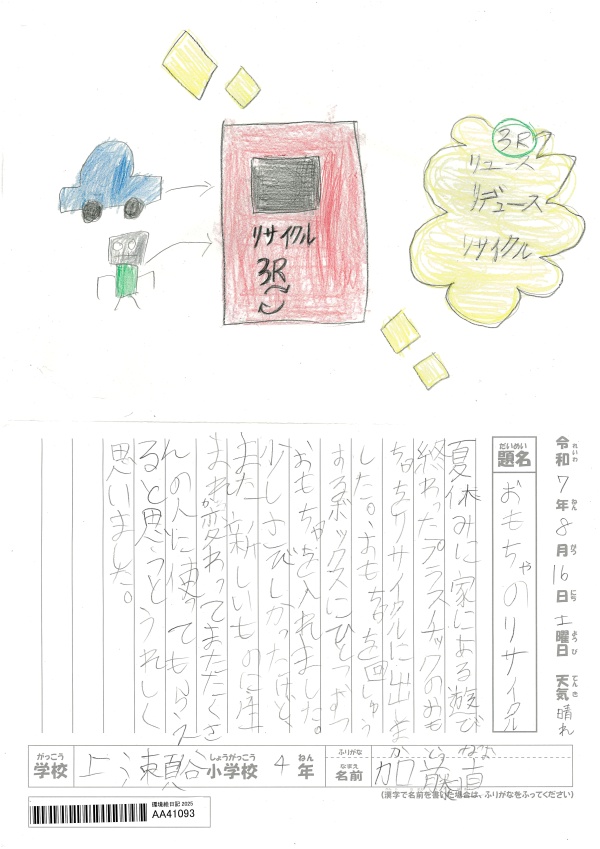 3R
リユース
リデュース
リサイクル
リサイクル
3R
令和7年8月16日土曜日 天気 晴れ
れいわ ねん がつ にち ようび てんき
だいめい
題名 おもちゃのリサイクル
夏休みに家にある遊び
終わったプラスチックのおも
ちゃをリサイクルに出しま
した。おもちゃを回しゅう
するボックスにひとつずつ
おもちゃを入れました。
少しさびしかったけど、
また新しいものに生
まれ変わってまたたくさ
んの人に使ってもらえ
ると思うとうれしく
思いました。
がっこう しょうがっこう ねん ふりがな
学校 上瀬谷 小学校 4年 なまえ 名前 加藤 直
(漢字で名前を書いた場合は、ふりがなをふってください)
環境絵日記 2025
AA41093